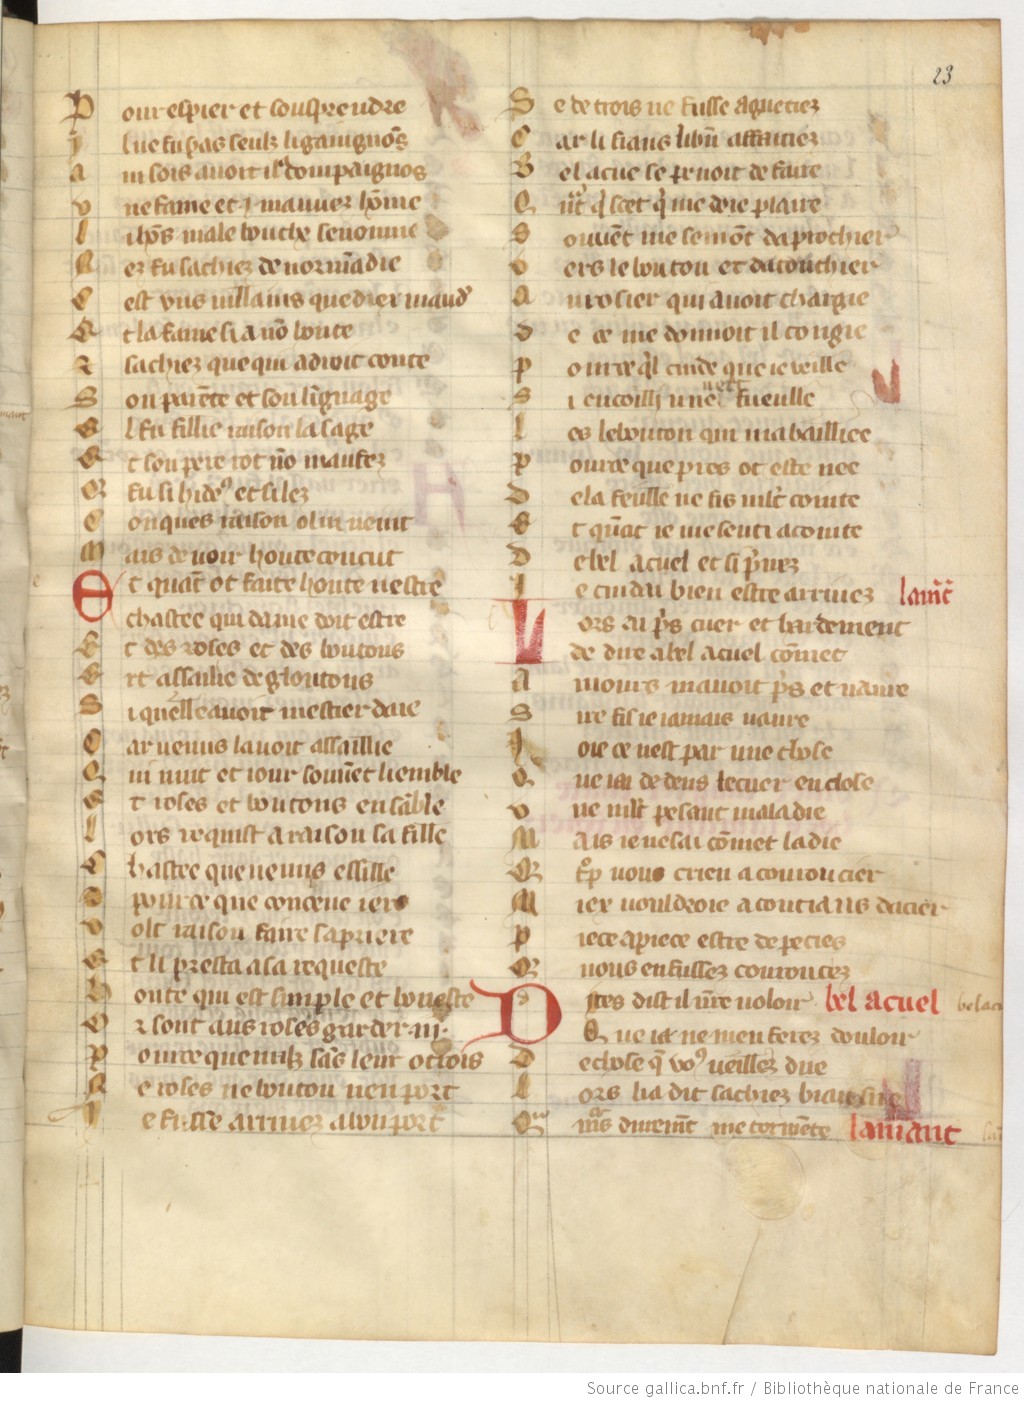 23
Pour espier et sousprendre
Il ne fu pas seulz li gaaignons
Ainsois avoit il compaignos
Une fame et .j. mauves home
Li hons male bouche se nomme
Rer fu sachiez de normādie
Cest uns villains que dieu maud'
Et la fame si a nō honte
Et sachiez que qui a droit conte
Son parēte et son lignage
El fu fillie raison la sage
Et son pere rot nō maufez
Qr fu si hideꝰ et si lez
Conques raison o lui ne iut
Mais de voir honte concut
Et quāt ot faite honte nestre
Chastee qui dame doit estre
Et des roses et des boutons
Ert assailie de gloutons
Si quelle avoit mestier daie
Car venus lavoit assaillie
Qui nuit et iour souuēt li emble
Et roses et boutons ensāble
Lors requist a raison sa fille
Chastee que venus essille
Pour ce que
Volt raison faire sa priere
Et li presta a sa requeste
Honte qui est simple et honeste
Or sont aus roses garder .iij.
Pour ce que nulz sās leur ottois
Ne roses ne bouton nen port
Je fusse arrivez a bon port
Se de trois ne fusse aguetiez
Car li frans li bn̄ affaitiez
Bel acuel se penoit de faire
Qn̄t q̄ scet q̄ me doie plaire
Souuēt me semōt daprochier
Vers le bouton et datouchier
Au rosier qui avoit chargie
De ce me donnoit il congie
Pour ce q̄l cuide que ie veille
Si encoilli une vert fueulle
Les le bouton qui ma baillice
Pour ce que pres ot este nee
De la feulle me fis mlt cointe
Et quāt ie me senti acointe
De bel acuel et si privez
Je cuidai bien estre arrivez lamāt
Lors ai pris cuer et hardement
De dire a bel acuel cōmet
Amours mavoit pris et navre
Sire fis ie iamais navre
Joie ce nest par une chose
Que iai dedens le cuer enclose
Une mlt pesant maladie
Mais ie ne sai cōmet la die
Qr vous crien a couroucier
Miex vouldroie a coutians dacier
Piece a piece estre depecies
Que vous en fussez couroucez
Dites dist il vre voloir bel acuel
Que ia ne men ferez douloir
De chose q̄ voꝰ veillez dire
Lors li a dit sachiez biau sire
Quamōs durement me tormēte lamant